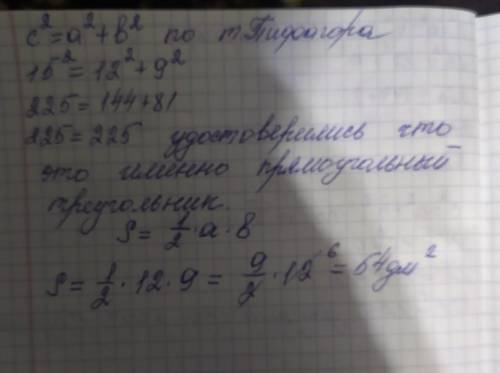 c² = a² + b² по т Пифагора
15² = 12² + 9²
225 = 144 + 81
225 = 225 удостоверились что
это именно прямоугольный
треугольник.
S = 1/2 · a · b
S = 1/2 · 12 · 9 = 9/2 · 12 ⁶ = 54 дм²